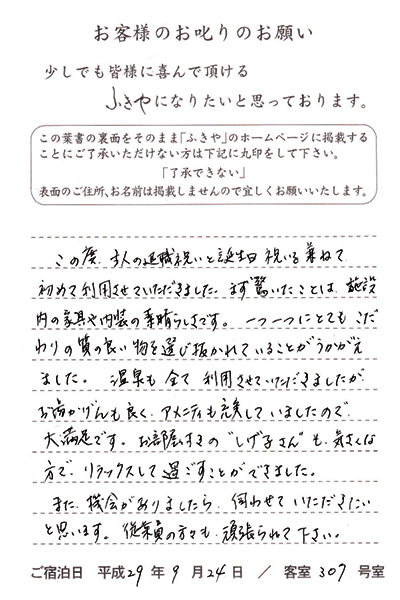 お客様のお叱りのお願い
少しでも皆様に喜んで頂ける
ふきやになりたいと思っております。
この葉書の裏面をそのまま「ふきや」のホームページに掲載する
ことにご了承いただけない方は下記に丸印をして下さい。
「了承できない」
表面のご住所、お名前は掲載しませんので宜しくお願いいたします。
この度、主人の退職祝いと誕生日祝いを兼ねて
初めて利用させていただきました。まず驚いたことは、施設
内の家具や内装の素晴らしさです。一つ一つにとてもこだ
わりの質の良い物を選び抜かれていることがうかがえ
ました。温泉も全て利用させていただきましたが
お湯かげんも良く、アメニティも充実していましたので、
大満足です。お部屋付きの"しげ子さん"も、気さくな
方で、リラックスして過ごすことができました。
また、機会がありましたら、伺わせていただきたい
と思います。従業員の方々も、頑張られて下さい。
ご宿泊日 平成29年9月24日 / 客室307号室